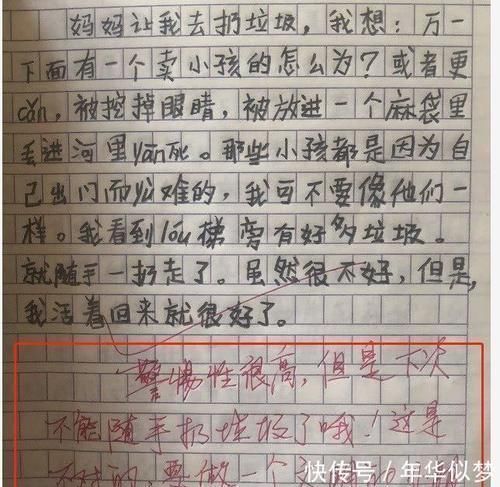 妈妈让我去扔垃圾，我想：万一
下面有一个卖小孩的怎么为？或者更
cǎn，被挖掉眼睛，被放进一个麻袋里
丢进河里yān死。那些小孩都是因为自
己出门而公难的，我可不要像他们一
样。我看到lóu梯旁有好多垃圾。
就随手一扔走了。虽然很不好，但是，
我活着回来就很好了。
警惕性很高，但是下次
不能随手扔垃圾了哦！这是
不对的，要做一个文
快传号/年华似梦